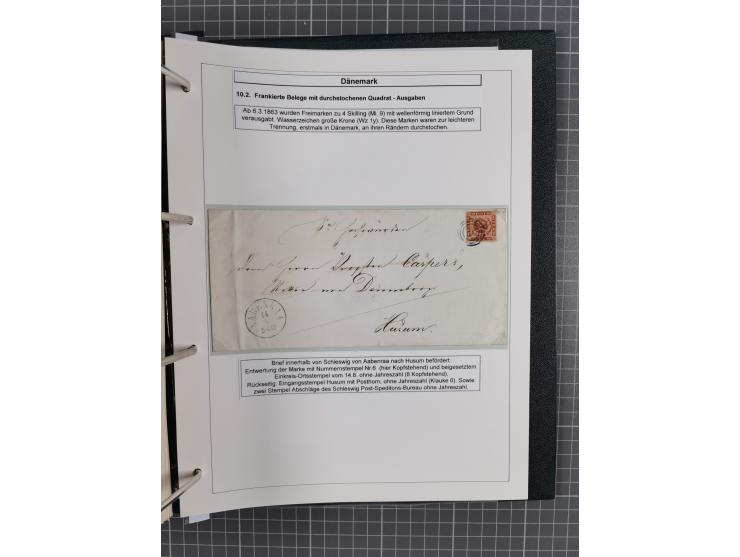 Dänemark
10.2. Frankierte Belege mit durchstochenen Quadrat - Ausgaben
Ab 6.3.1863 wurden Freimarken zu 4 Skilling (Mi. 9) mit wellenförmig liniertem Grund
verausgabt. Wasserzeichen große Krone (Wz 1y). Diese Marken waren zur leichteren
Trennung, erstmals in Dänemark, an ihren Rändern durchstochen.
Sr Hochwürden
dem Herrn Propsten Cärpers,
Ritter von Dannebrog
Husum.
14
Brief innerhalb von Schleswig von Aabenraa nach Husum befördert.
Entwertung der Marke mit Nummernstempel Nr.6 (hier Kopfstehend) und beigesetztem
Einkreis-Ortsstempel vom 14.8. ohne Jahreszahl (8 Kopfstehend).
Rückseitig: Eingangsstempel Husum mit Posthorn, ohne Jahreszahl (Klauke 6). Sowie
zwei Stempel Abschläge des Schleswig Post-Speditons-Bureau ohne Jahreszahl.